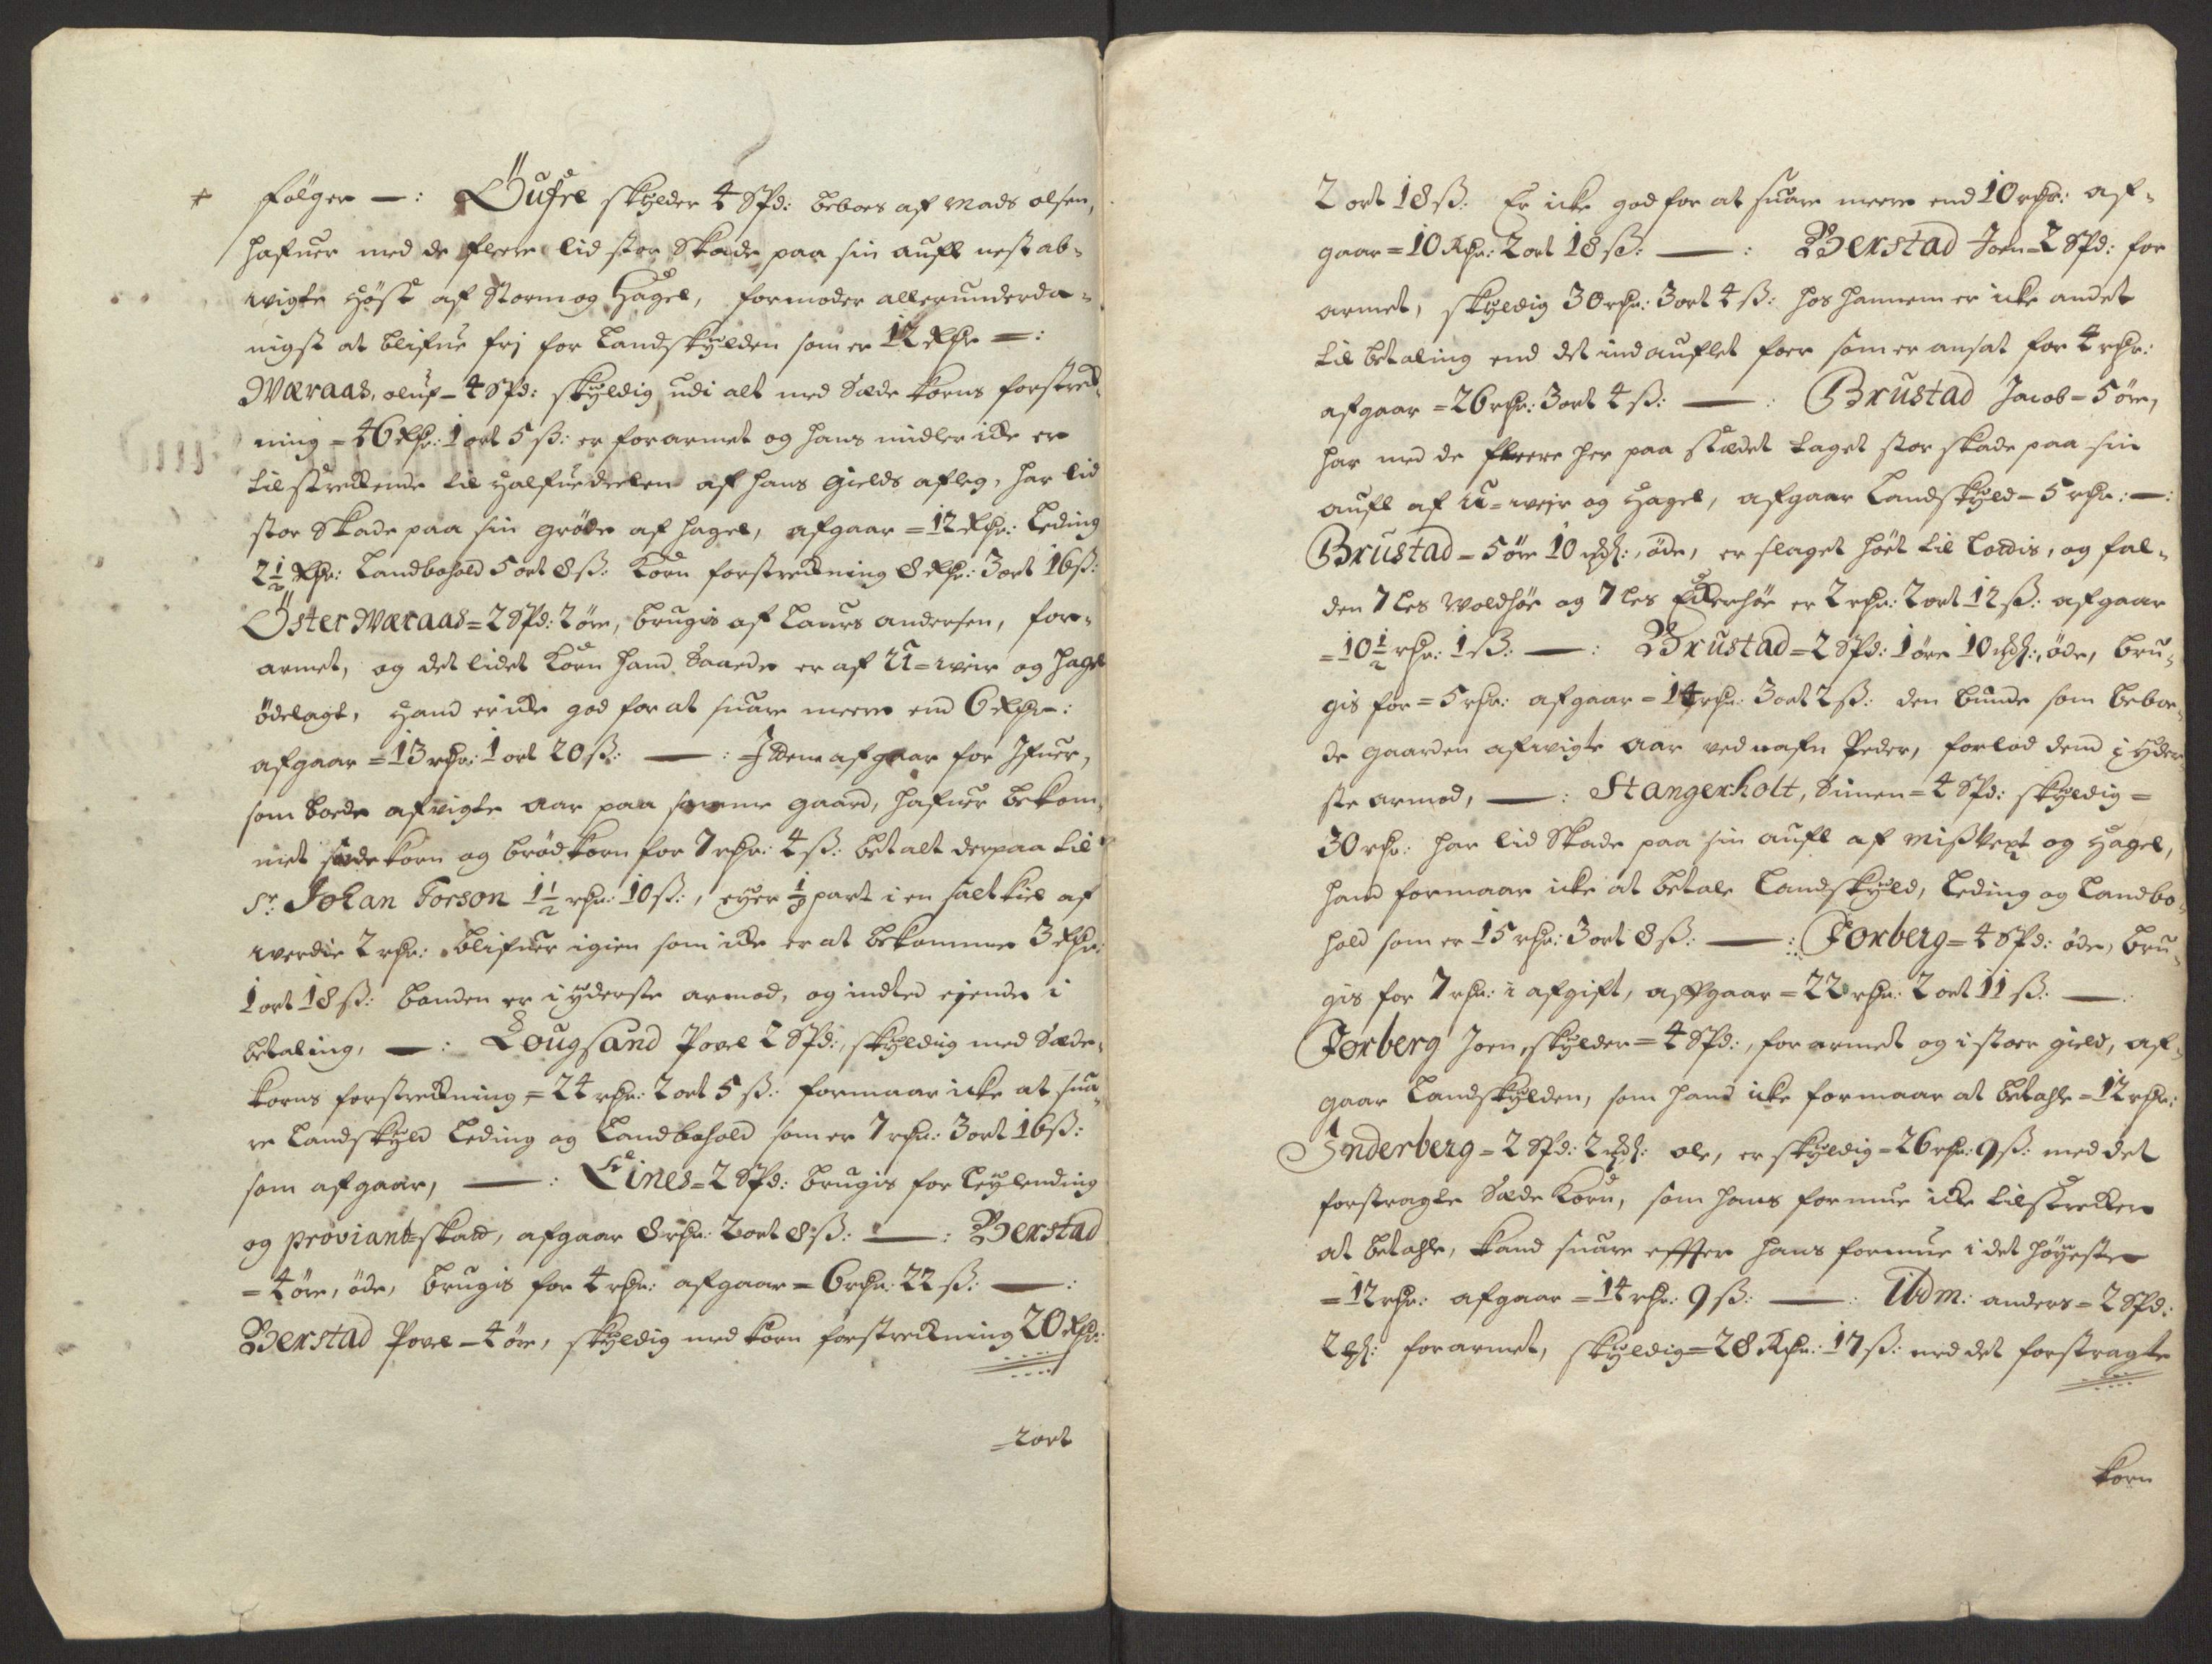 følger —: Öufre skylder 4 Spd: beboes af Mads olsen,
hafuer med de fleere lid stor Skade paa sin aufl nest af-
wigte Høst af Storm og Hagel, formoder allerunderda-
nigst at blifue frj for Landskylden som er 12 Rdr =:
Wæraas, oluf - 4 Spd: skyldig udi alt med Sæde korns forstreck-
ning = 46 Rdr: 1 ort 5 ß: er forarmet og hans midler icke er
tilstreckende til Halfuedeelen af hans gields aflæg, har lid
stor Skade paa sin grøde af hagel, afgaar = 12 Rdr: Leding
2½ Rdr: Landbohold 5 ort 8 ß: Korn forstreckning 8 Rdr: 3 ort 16 ß:
Öster Wæraas = 2 Spd: 2 øre, brugis af Laurs andersen, for-
armet, og det lidet Korn hand Saaede er af U-weir og hagel
ødelagt, Hand er icke god for at suare meere end 6 Rdr:
afgaar = 13 rdr: 1 ort 20 ß: —: Item afgaar for Ifuer,
som boede afvigte aar paa samme gaard, hafuer bekom-
met sædekorn og brødkorn for 7 rdr: 4 ß: betalt derpaa til
Sr. Johan Forson 1½ rdr: 10 ß:, eyer ⅛ part i en salt kiel af
werdie 2 rdr: blifuer igien som icke er at bekomme 3 Rdr:
1 ort 18 ß: bonden er i yderste armod, og indted eiende i
betaling, —: Lougsand Povel 2 Spd:, skyldig med Sæde-
korns forstreckning = 24 rdr: 2 ort 5 ß: formaar icke at sua-
re Landskyld Leding og Landbohold som er 7 rdr: 3 ort 16 ß:
som afgaar, —: Eines = 2 Spd: brugis for Leylending
og proviant-skatt, afgaar 8 rdr: 2 ort 8 ß: —: Berstad
= 4 øre, øde, brugis for 4 rdr: afgaar = 6 rdr: 22 ß: —:
Berstad Povel - 4 øre, skyldig med korn forstreckning 20 Rdr:
= 2 ort
2 ort 18 ß: Er icke god for at suare meere end 10 rdr: af-
gaar = 10 Rdr: 2 ort 18 ß: —: Berstad Joen = 2 Spd: for
armet, skyldig 30 rdr: 3 ort 4 ß: hos hannem er icke andet
til betaling end det indauflet foer som er ansat for 4 rdr:
afgaar = 26 rdr: 3 ort 4 ß: —: Brustad Jacob = 5 øre,
har med de fleere her paa stædet taget stor skade paa sin
aufl af U-weir og Hagel, afgaar Landskyld - 5 rdr: —:
Brustad = 5 øre 10 øde, er slaget høet til Lottis, og fal-
den 7 Les Woldhøe og 7 Les Eckerhøe er 2 rdr: 2 ort 12 ß: afgaar
= 10½ rdr: 1 ß. —: Brustad = 2 Spd: 1 øre 10 øde, bru-
gis for = 5 rdr: afgaar = 14 rdr: 3 ort 2 ß: den bunde som beboe-
de gaarden afwigte aar ved nafn Peder, forlod dend i yder-
ste armod, —: Stangerholt, Simen = 4 Spd: skyldig =
30 rdr: har lid Skade paa sin aufl af Mißvext og Hagel,
hand formaar icke at betale Landskyld, Leding og Landbo-
hold som er 15 rdr: 3 ort 8 ß: —: Forberg = 4 Spd: øde, bru-
gis for 7 rdr: i afgift, affgaar = 22 rdr: 2 ort 11 ß: —:
Forberg Joen, skylder = 4 Spd:, forarmet og i stoer gield, af-
gaar Landskylden, som hand icke formaar at betahle = 12 rdr:
Inderberg = 2 Spd: 2 ole, er skyldig = 26 rdr: 9 ß: med det
forstragte Sæde Korn, som hans formue icke tilstrecker
at betahle, kand suare effter hans formue i det høyeste
= 12 rdr: afgaar = 14 rdr: 9 ß: —: Ibdm: anders = 2 Spd:
2 forarmet, skyldig = 28 Rdr: 17 ß: med det forstragte
korn